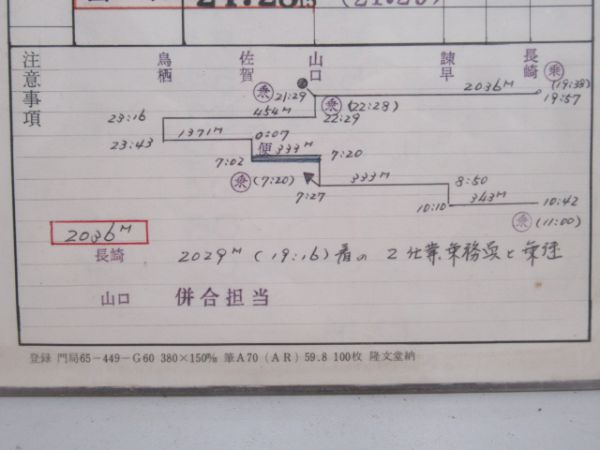 注意事項
鳥栖 佐賀 山口 諫早 長崎
2036M 乗 (19:38)
乗 21:29 19:57
454M 乗 (22:28)
23:16 22:29
1371M 0:07
23:43 便 333M 7:20
7:02
乗 (7:20) 333M 8:50
7:27 343M 10:42
10:10 乗 (11:00)
2036M
長崎 2029M (19:16) 着の 2仕業乗務員と乗継
山口 併合担当
登録 門局65-449-G60 380×150㎜ 筆A70 (AR) 59.8 100枚 隆文堂納